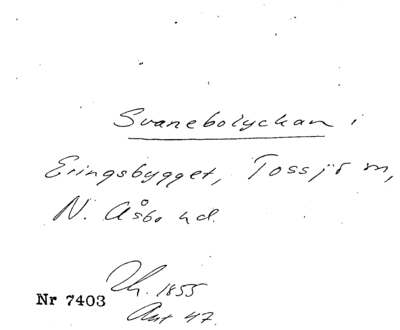 Svanebolyckan i
Eringsbygget, Tossjö m,
N. Åsbo hd.
Th. 1855
Nr 7403
Ant 47.